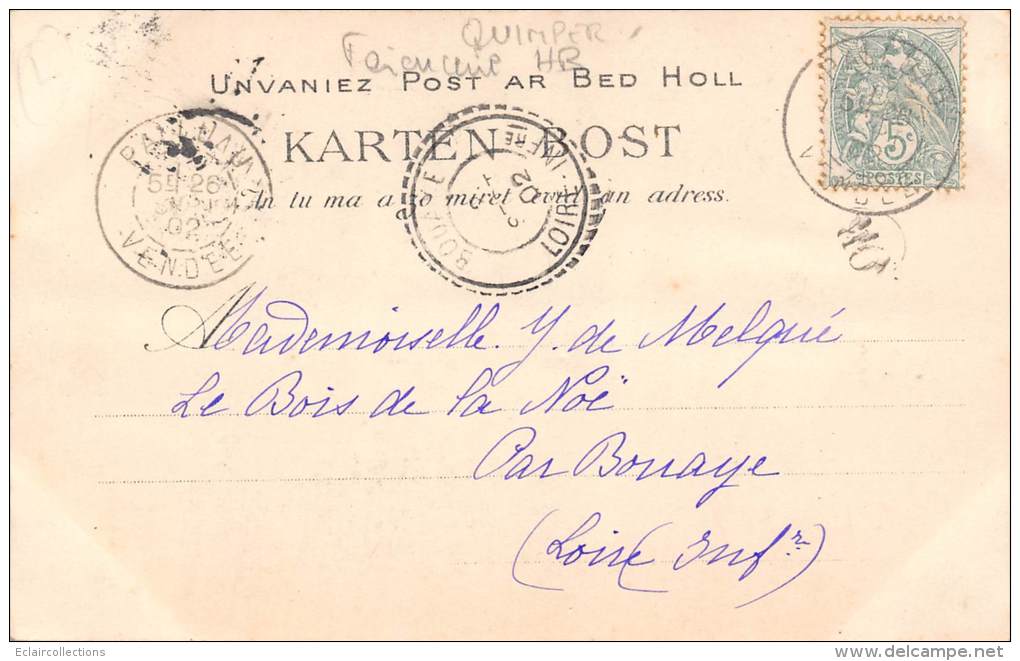 QUIMPER
Faiencerie HB
UNVANIEZ POST AR BED HOLL
KARTEN-POST
An tu ma a zo miret evid an adress.
VENDÉE
26
02
BOUAYE
LOIRE-INFRE
02
5c
POSTES
Mademoiselle. Y. de Melqué
Le Bois de la Noë
Par Bouaye
(Loire Infre)
Eclaircollections
delcampe.net